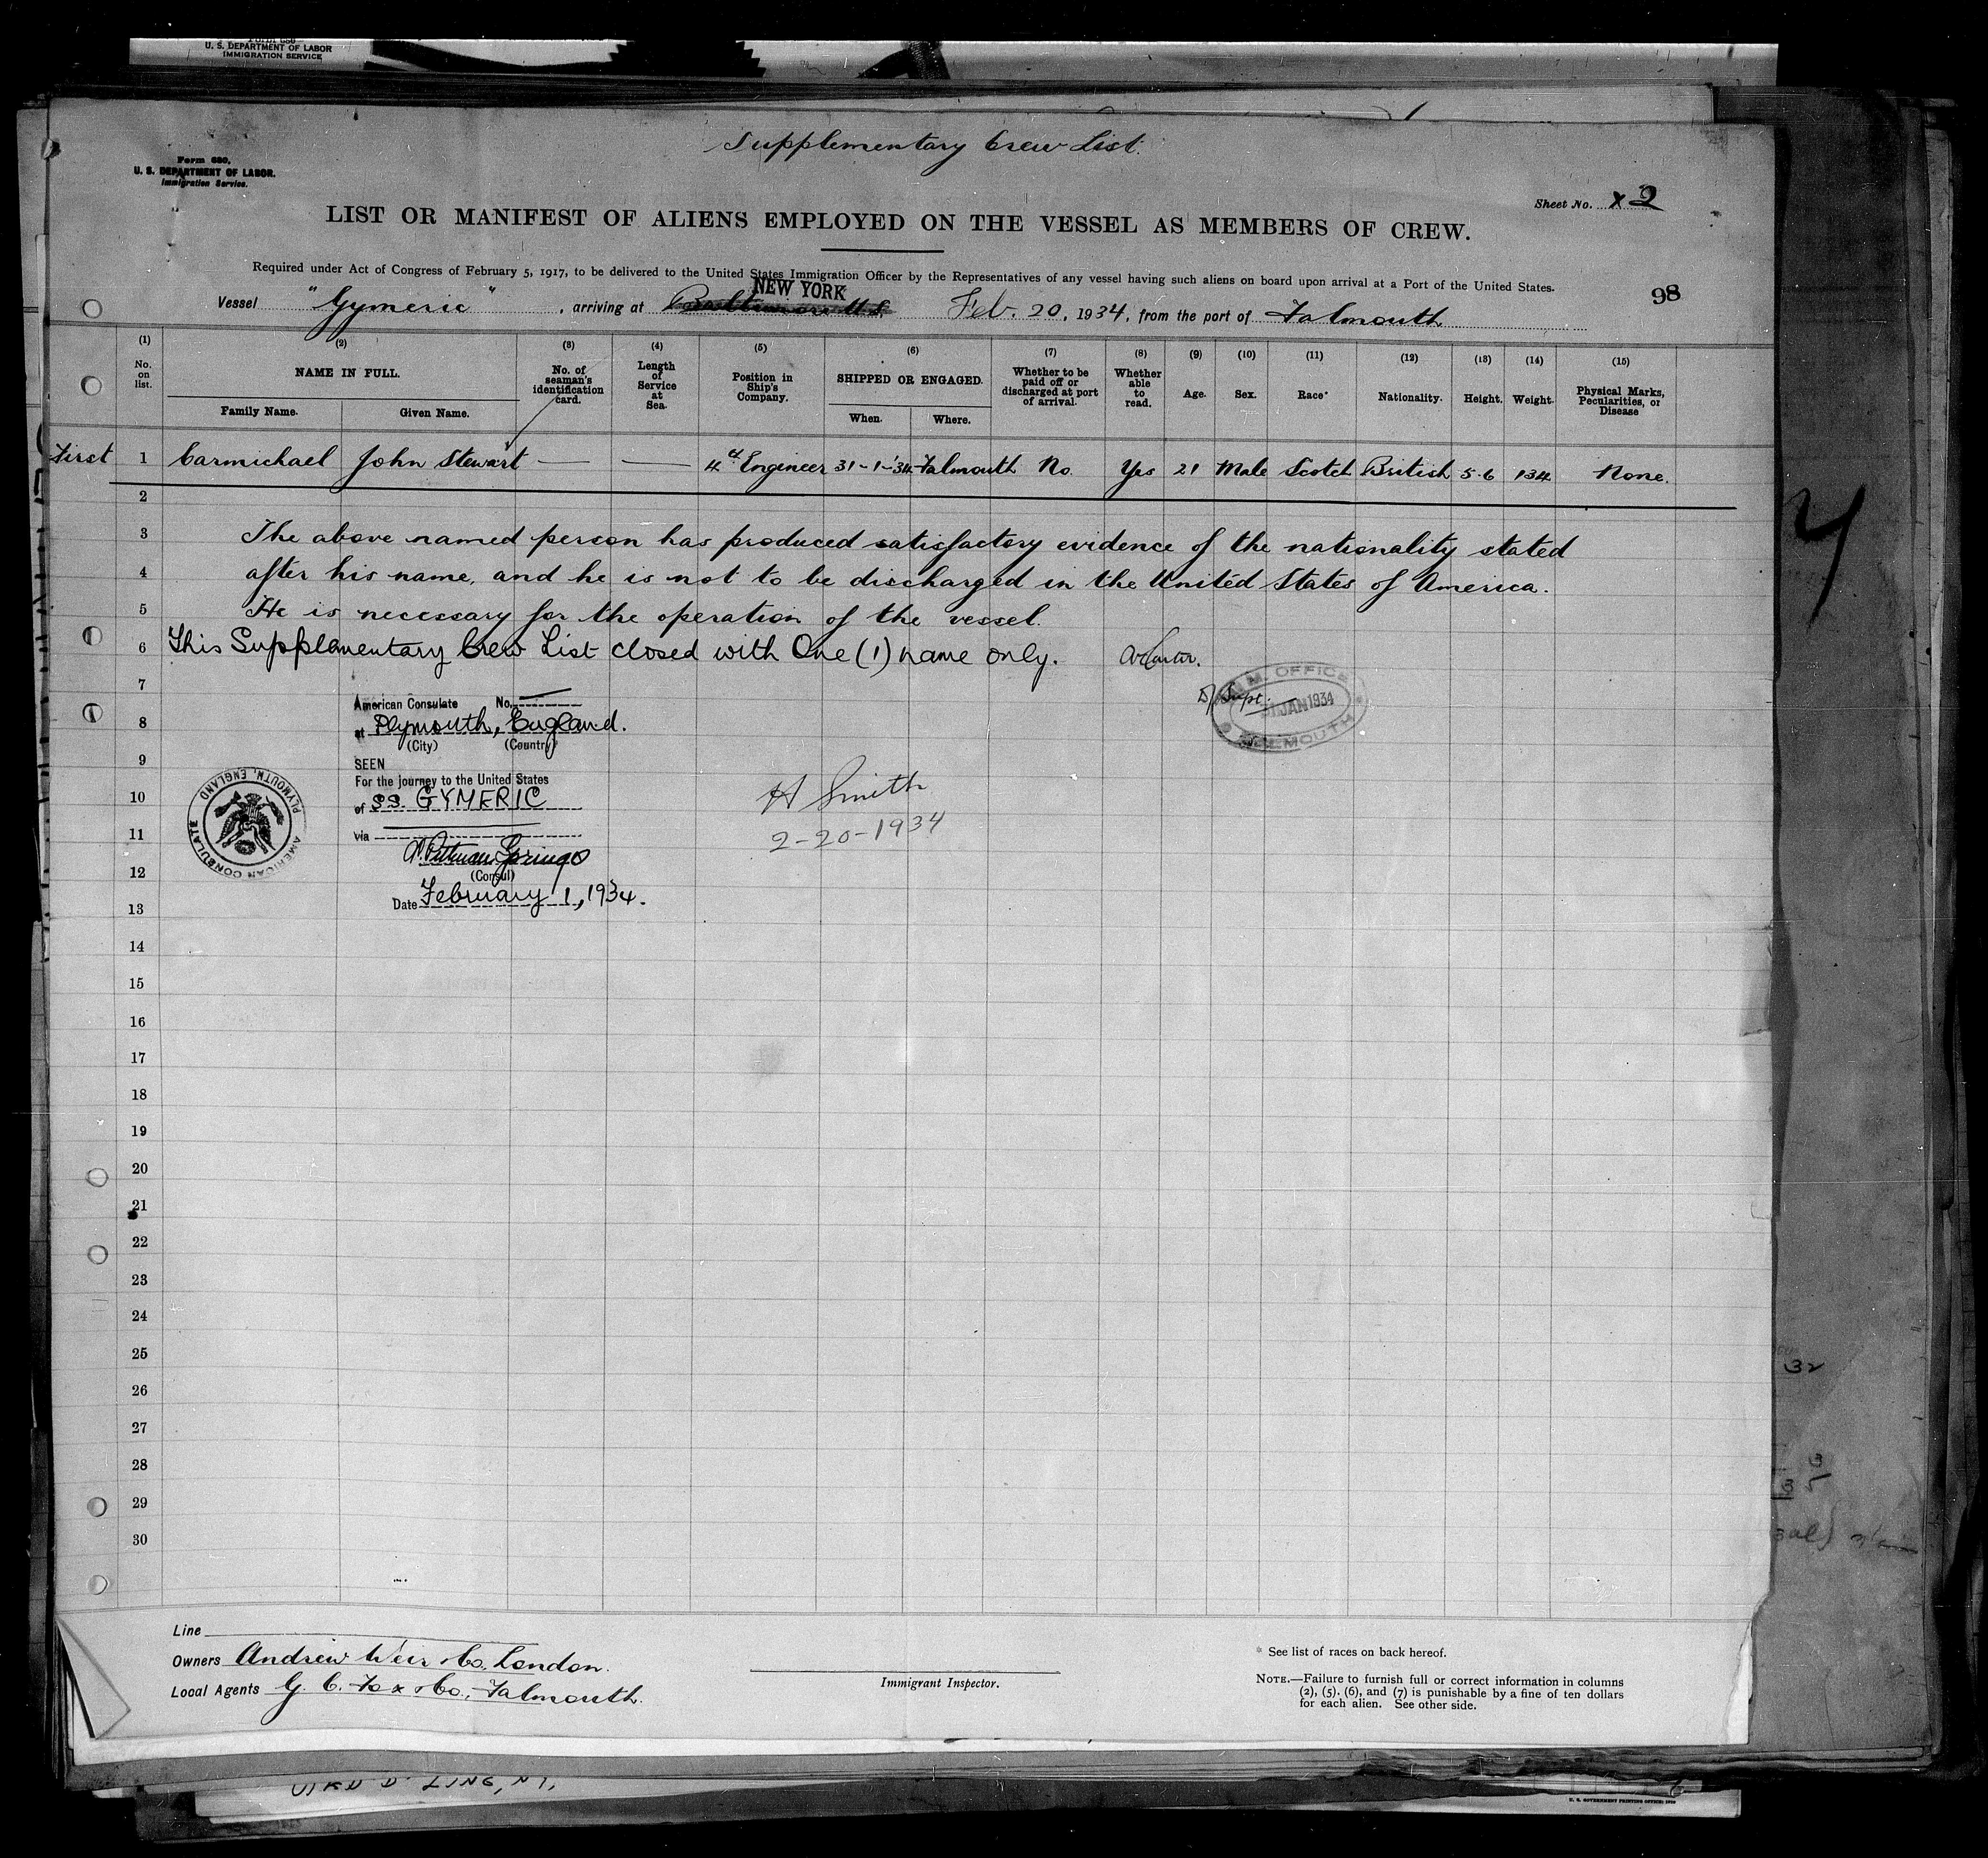 Form 680
U. S. DEPARTMENT OF LABOR
IMMIGRATION SERVICE
Supplementary Crew List.
Form 680,
U. S. DEPARTMENT OF LABOR.
Immigration Service.
Sheet No. x 2
LIST OR MANIFEST OF ALIENS EMPLOYED ON THE VESSEL AS MEMBERS OF CREW.
Required under Act of Congress of February 5, 1917, to be delivered to the United States Immigration Officer by the Representatives of any vessel having such aliens on board upon arrival at a Port of the United States.
NEW YORK
98
Vessel "Gymeric", arriving at Baltimore U.S. Feb. 20, 1934, from the port of Falmouth
(1) (2) (3) (4) (5) (6) (7) (8) (9) (10) (11) (12) (13) (14) (15)
No. on list. NAME IN FULL. Family Name. Given Name. No. of seaman's identification card. Length of Service at Sea. Position in Ship's Company. SHIPPED OR ENGAGED. When. Where. Whether to be paid off or discharged at port of arrival. Whether able to read. Age. Sex. Race* Nationality. Height. Weight. Physical Marks, Pecularities, or Disease
First 1 Carmichael John Stewart — — 4th Engineer 31-1-'34 Falmouth No. Yes 21 Male Scotch British 5.6 134 None.
2
3 The above named person has produced satisfactory evidence of the nationality stated
4 after his name, and he is not to be discharged in the United States of America.
5 He is necessary for the operation of the vessel.
6 This Supplementary Crew List closed with One (1) name only.
7
D/ Supt.
M. M. OFFICE
31 JAN 1934
FALMOUTH
American Consulate No.
8 at Plymouth, England.
(City) (Country)
9 SEEN
For the journey to the United States
10 of SS. GYMERIC
H Smith
11 via
2-20-1934
AMERICAN CONSULATE
PLYMOUTH, ENGLAND
12 (Consul)
Date February 1, 1934.
13
14
15
16
17
18
19
20
21
22
23
24
25
26
27
28
29
30
32
3
35
Line
Owners Andrew Weir & Co. London.
Local Agents G. C. Fox & Co., Falmouth.
Immigrant Inspector.
* See list of races on back hereof.
NOTE.—Failure to furnish full or correct information in columns
(2), (5), (6), and (7) is punishable by a fine of ten dollars
for each alien. See other side.